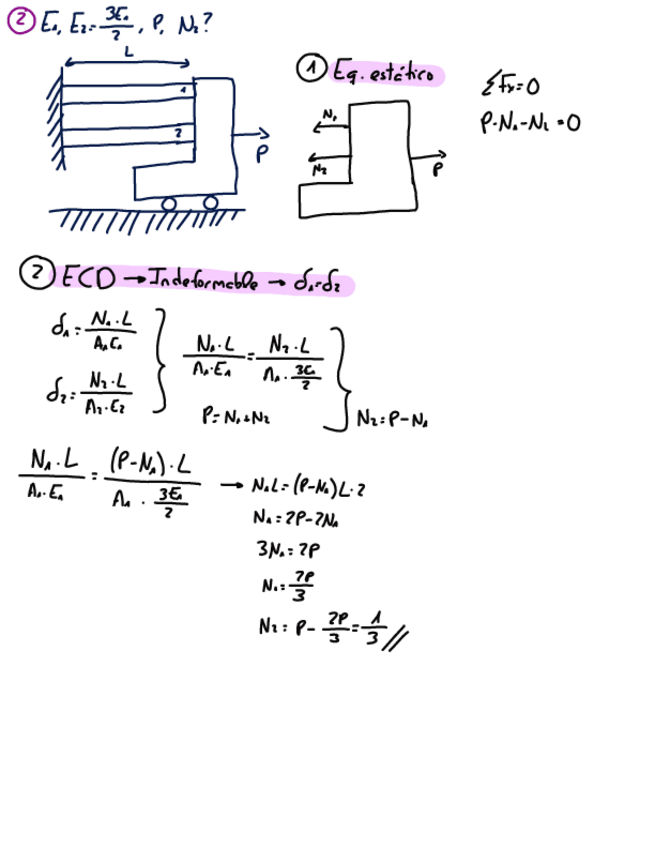 ② E₁, E₂=3E₁/2, P, N₂?
L
1
2
P
① Eq. estático
N₁
N₂
P
ΣFx=0
P-N₁-N₂=0
② ECD → Indeformable → δ₁=δ₂
δ₁=N₁·L/A₁E₁
δ₂=N₂·L/A₂·E₂
N₁·L/A₁·E₁=N₂·L/A₁·3E₁/2
P=N₁+N₂
N₂=P-N₁
N₁·L/A₁·E₁=(P-N₁)·L/A₁·3E₁/2
→ N₁L=(P-N₁)L·2
N₁=2P-2N₁
3N₁=2P
N₁=2P/3
N₂=P-2P/3=1/3//